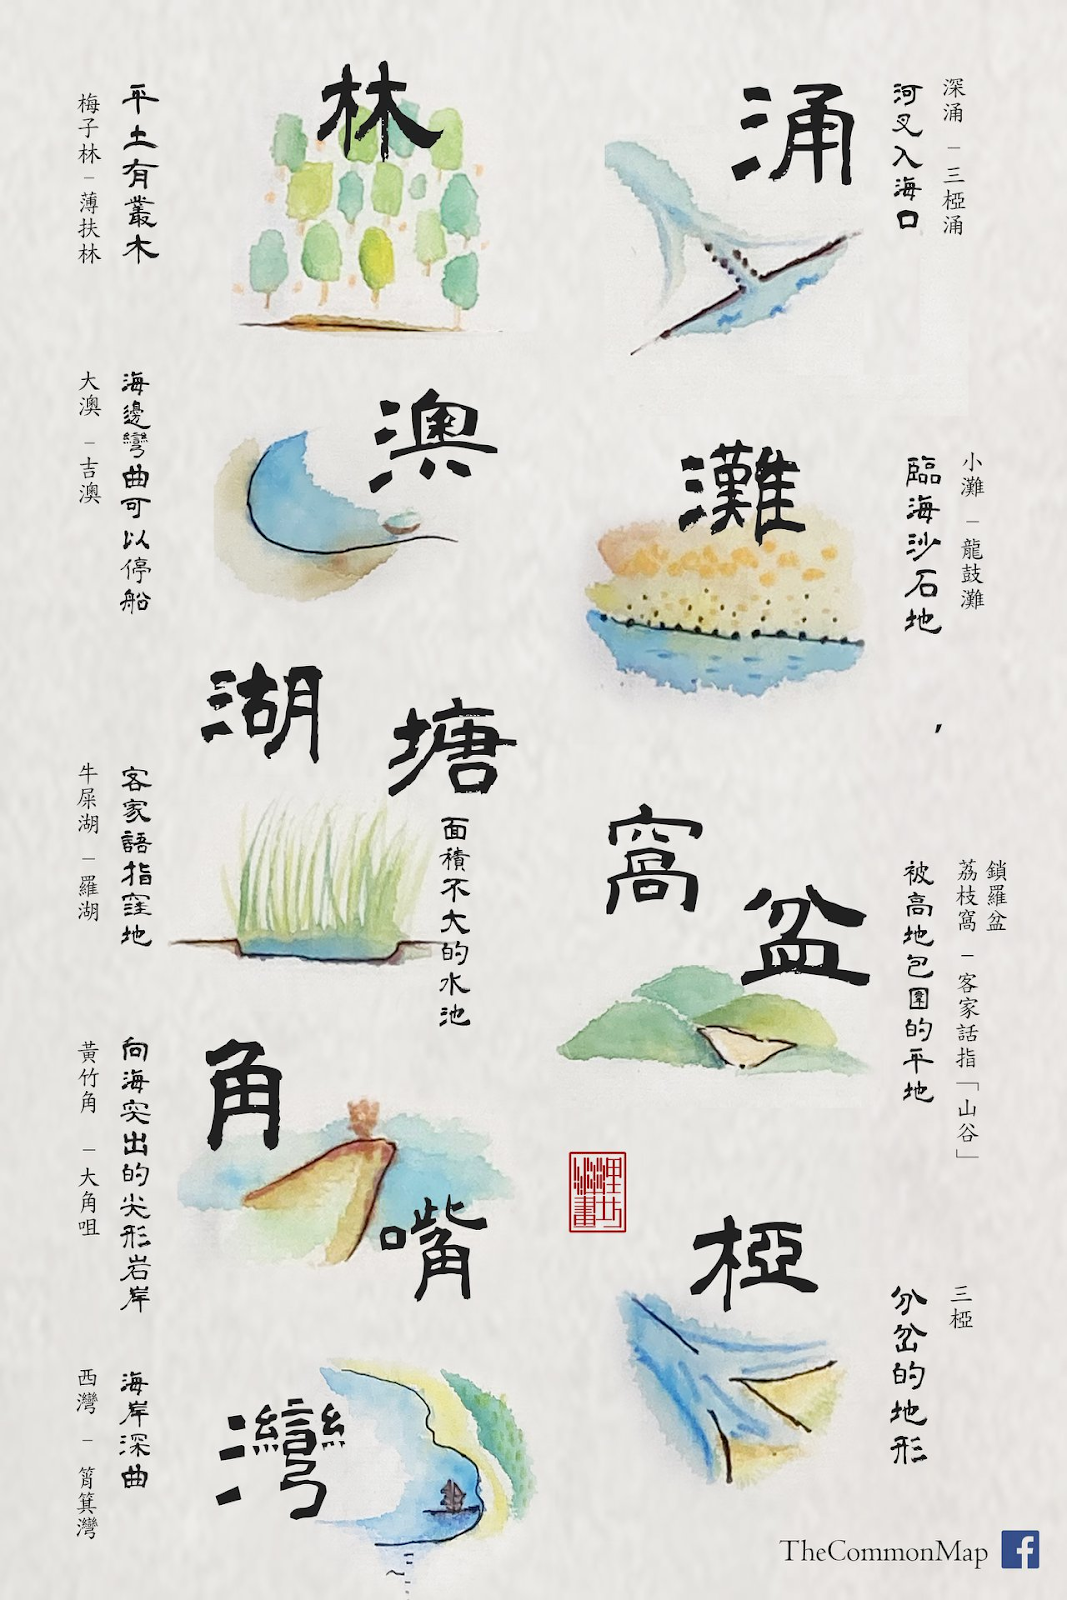 涌
深涌 － 三椏涌
河叉入海口
林
平土有叢木
梅子林－薄扶林
澳
海邊彎曲可以停船
大澳 － 吉澳
灘
小灘 － 龍鼓灘
臨海沙石地
，
湖
客家語指窪地
牛屎湖 － 羅湖
塘
面積不大的水池
窩
盆
鎖羅盆
荔枝窩 － 客家話指「山谷」
被高地包圍的平地
角
嘴
向海突出的尖形岩岸
黃竹角 － 大角咀
椏
三椏
分岔的地形
灣
海岸深曲
西灣 － 筲箕灣
TheCommonMap f